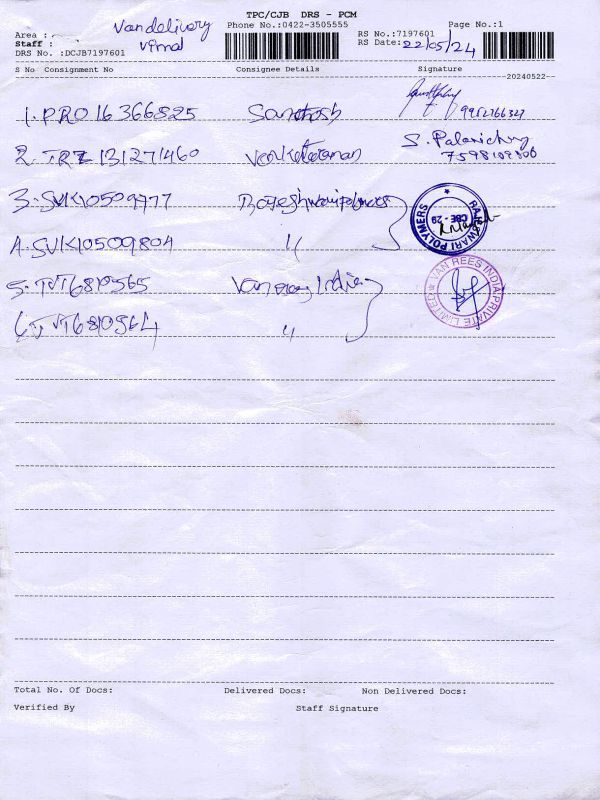 TPC/CJB DRS - PCM
Area : Vandelivery
Phone No.:0422-3505555
Page No.:1
Staff : Vimal
RS No.:7197601
RS Date:22/05/24
DRS No. :DCJB7197601
S No Consignment No Consignee Details Signature
20240522
1. PRO16366825 Santhosh
2. TRZ131271460 Venkataraman S. Palanichamy
7598109800
3. SVK10509777 Rajeshwari polymers
RAJESWARI POLYMERS CBE - 29
4. SVK10509804 〃
5. TVT6810565 Vanrees India
VAN REES INDIA PRIVATE LIMITED
6. TVT6810564 〃
Total No. Of Docs: Delivered Docs: Non Delivered Docs:
Verified By Staff Signature